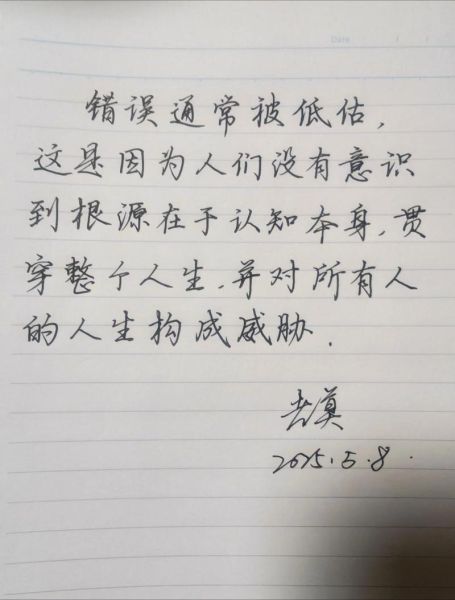 Date / /
错误通常被低估，
这是因为人们没有意识
到根源在于认知本身，贯
穿整个人生，并对所有人
的人生构成威胁．
2025.5.8.